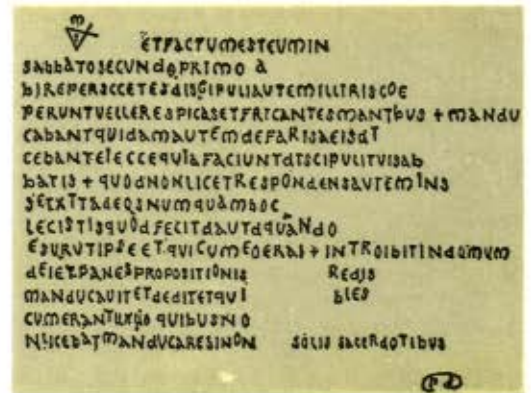 ETFACTUMESTEUMIN
SABBATOSECUNDOPRIMO A
BIREPERSCCETESDISGIPULIAUTEMILLTRISCOE
PERUNTUELLERESPICASETFRICANTESMANTBUS + MANDU
CABANTQUIDAMAUTEMDEFARISAEISDT
CEBANTEIECCEQUIAFACIUNTDTSCIPULITUISAB
BATIS + QUODNONLICETRESPONDENSAUTEMINS
SETXTTADEOSNUMQUAMBOC
LECISTISQUODFECITDAUTDQUANDO
ESURUTIPSEETQUICUMEOERAI + INTROIBITINDOMUM
DEIETPANESPROPOSITIONIS REDIS
MANDUCAUITETDEDITETQUI BLES
CUMERANTUXUO QUIBUSNO
NLICEBATMANDUCARESINON SOLIS SACERDOTIBUS